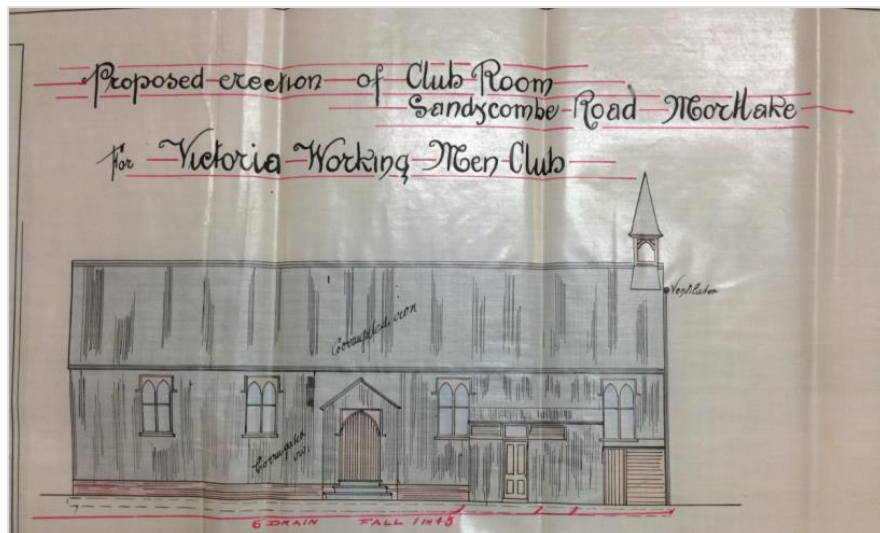 Proposed erection of Club Room
Sandycombe Road Mortlake
For Victoria Working Men Club
Ventilator
Corrugated iron
Corrugated iron
6 DRAIN FALL 1 IN 45